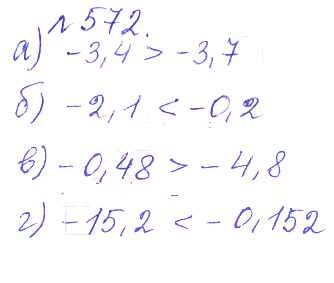 №572.
а) -3,4 > -3,7
б) -2,1 < -0,2
в) -0,48 > -4,8
г) -15,2 < -0,152